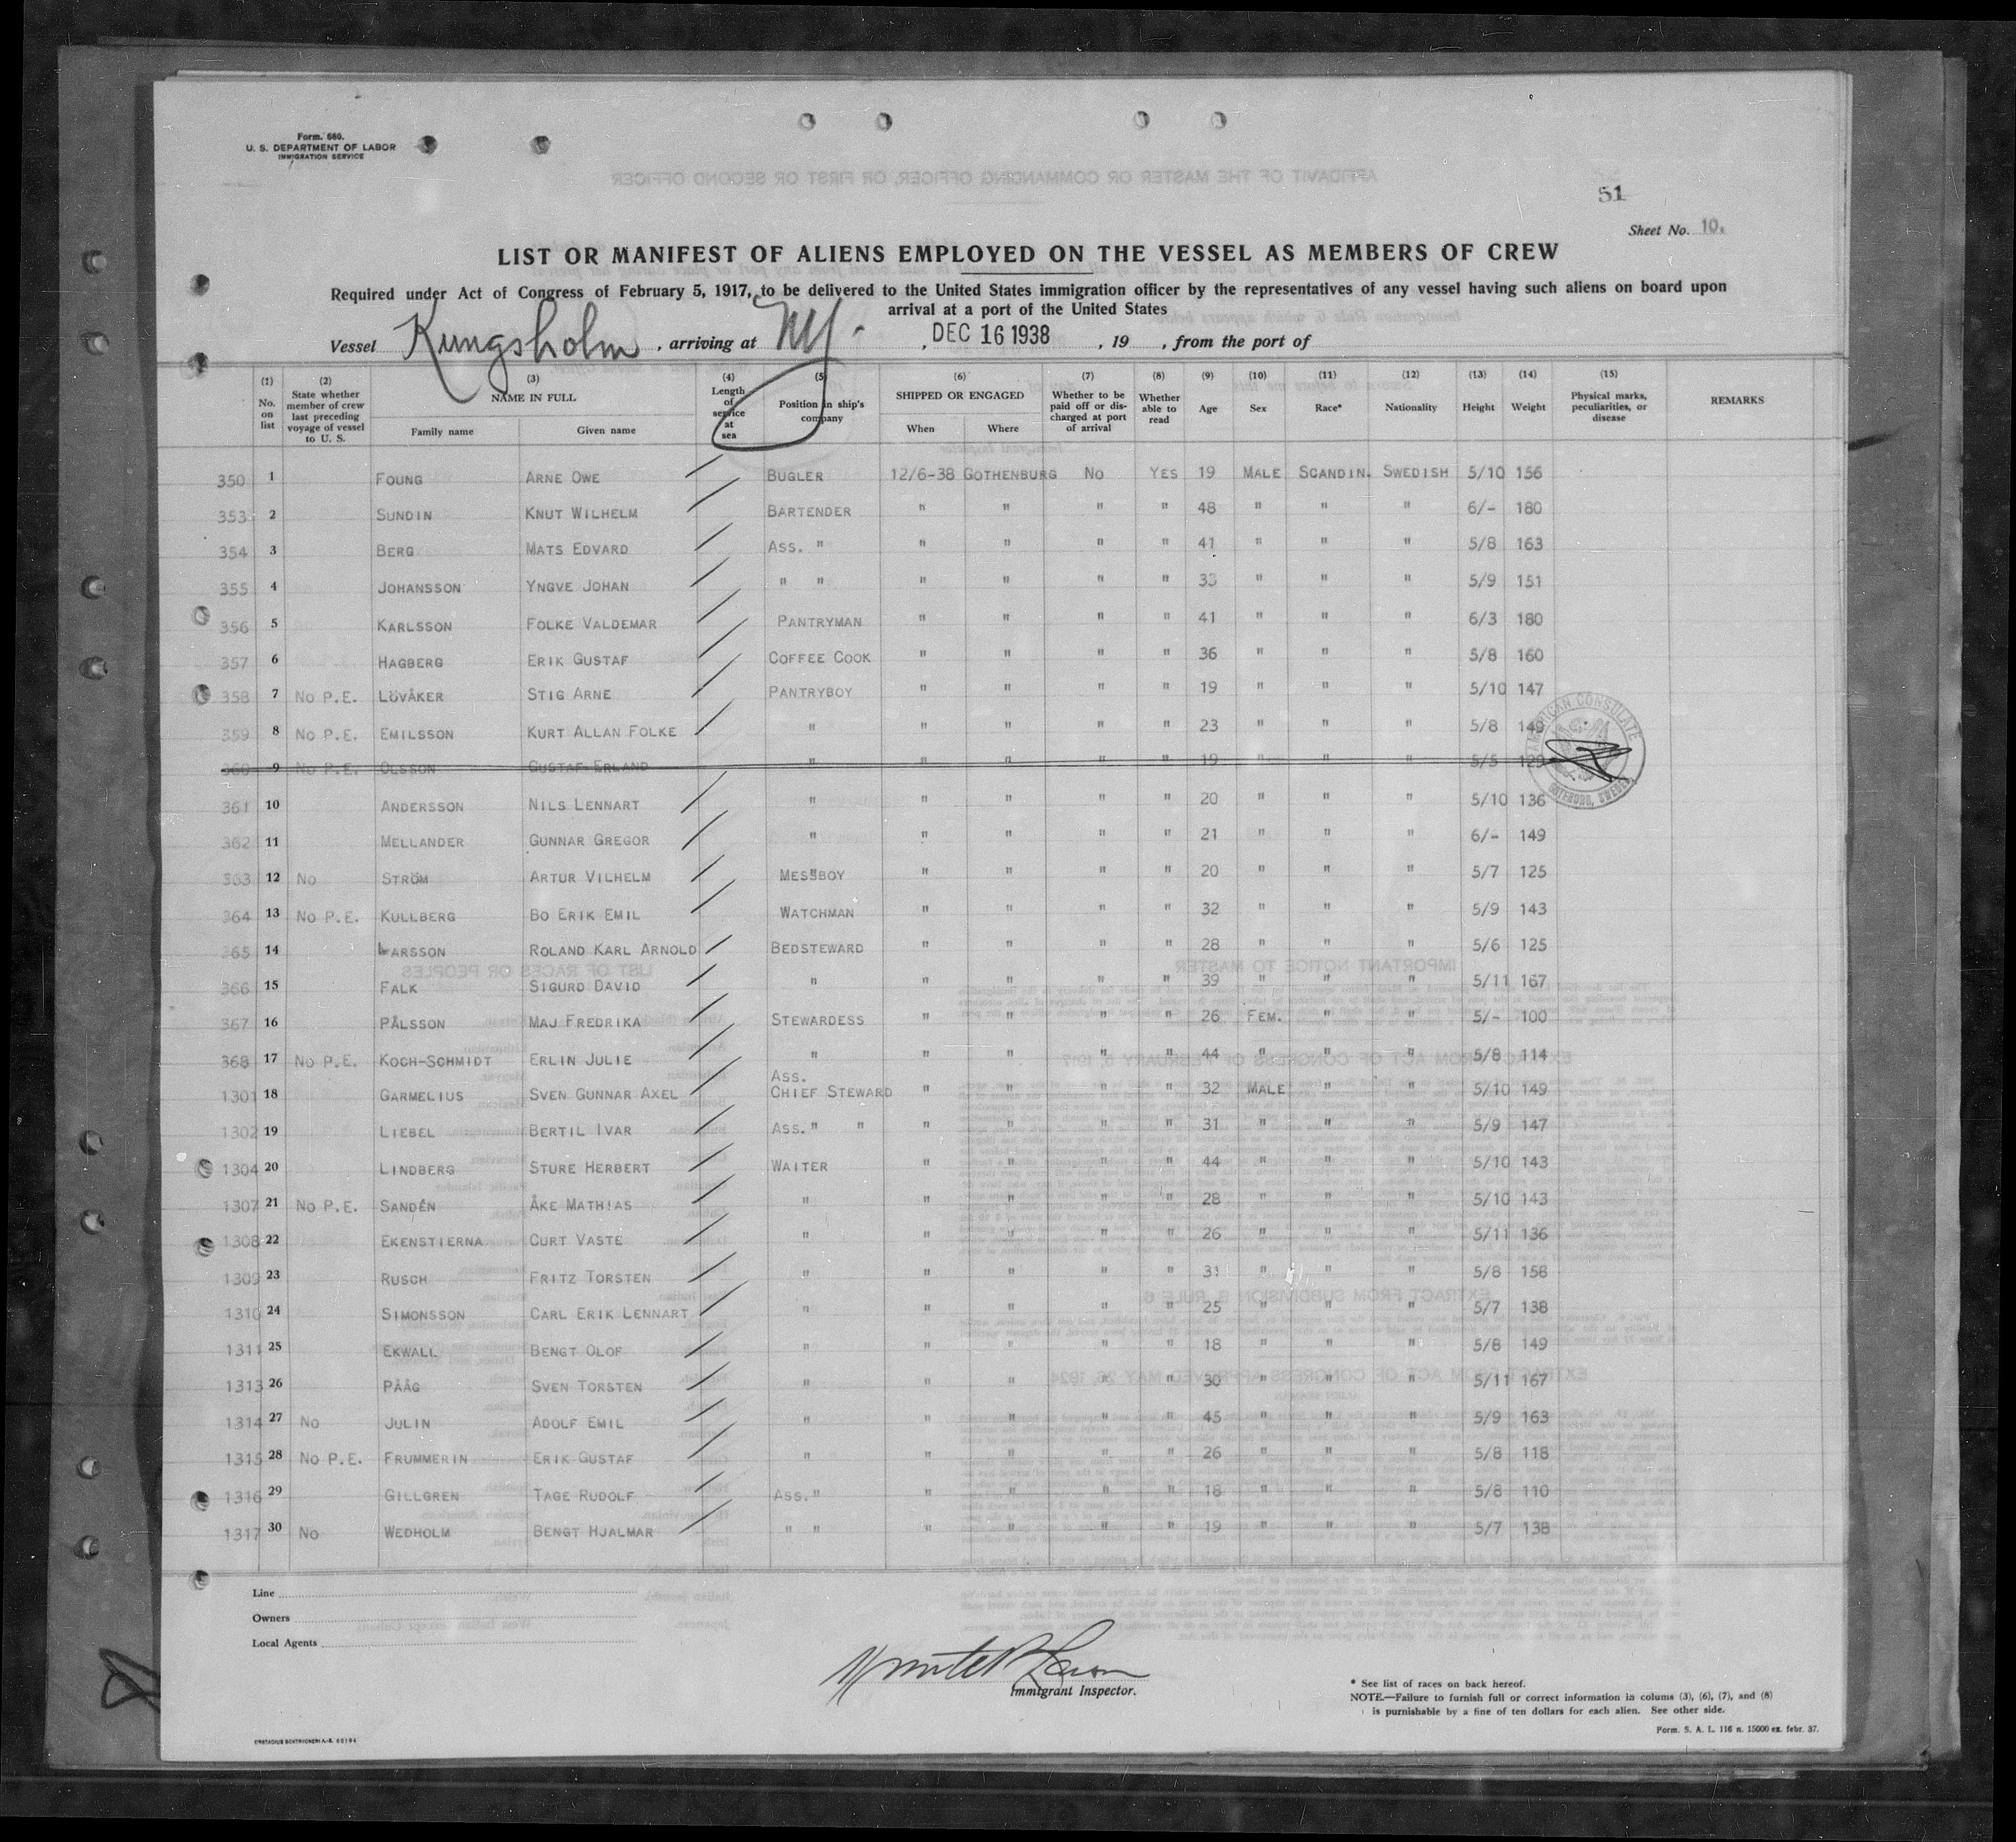 Form. 680.
U. S. DEPARTMENT OF LABOR
IMMIGRATION SERVICE
51
Sheet No. 10.
LIST OR MANIFEST OF ALIENS EMPLOYED ON THE VESSEL AS MEMBERS OF CREW
Required under Act of Congress of February 5, 1917, to be delivered to the United States immigration officer by the representatives of any vessel having such aliens on board upon
arrival at a port of the United States
Vessel Kungsholm, arriving at NY. , DEC 16 1938 , 19 , from the port of
(1) No. on list (2) State whether member of crew last preceding voyage of vessel to U. S. (3) NAME IN FULL Family name Given name (4) Length of service at sea (5) Position in ship's company (6) SHIPPED OR ENGAGED When Where (7) Whether to be paid off or discharged at port of arrival (8) Whether able to read (9) Age (10) Sex (11) Race* (12) Nationality (13) Height (14) Weight (15) Physical marks, peculiarities, or disease REMARKS
350 1 FOUNG ARNE OWE BUGLER 12/6-38 GOTHENBURG NO YES 19 MALE SCANDIN. SWEDISH 5/10 156
353 2 SUNDIN KNUT WILHELM BARTENDER " " " " 48 " " " 6/- 180
354 3 BERG MATS EDVARD ASS. " " " " " 41 " " " 5/8 163
355 4 JOHANSSON YNGVE JOHAN " " " " " " 33 " " " 5/9 151
356 5 KARLSSON FOLKE VALDEMAR PANTRYMAN " " " " 41 " " " 6/3 180
357 6 HAGBERG ERIK GUSTAF COFFEE COOK " " " " 36 " " " 5/8 160
358 7 NO P.E. LÖVÅKER STIG ARNE PANTRYBOY " " " " 19 " " " 5/10 147
359 8 NO P.E. EMILSSON KURT ALLAN FOLKE " " " " " 23 " " " 5/8 149
360 9 NO P.E. OLSSON GUSTAF ERLAND " " " " " 19 " " " 5/5 129
361 10 ANDERSSON NILS LENNART " " " " " 20 " " " 5/10 136
362 11 MELLANDER GUNNAR GREGOR " " " " " 21 " " " 6/- 149
363 12 NO STRÖM ARTUR VILHELM MESSBOY " " " " 20 " " " 5/7 125
364 13 NO P.E. KULLBERG BO ERIK EMIL WATCHMAN " " " " 32 " " " 5/9 143
365 14 LARSSON ROLAND KARL ARNOLD BEDSTEWARD " " " " 28 " " " 5/6 125
366 15 FALK SIGURD DAVID " " " " " 39 " " " 5/11 167
367 16 PÅLSSON MAJ FREDRIKA STEWARDESS " " " " 26 FEM. " " 5/- 100
368 17 NO P.E. KOCH-SCHMIDT ERLIN JULIE " " " " " 44 " " " 5/8 114
1301 18 GARMELIUS SVEN GUNNAR AXEL ASS. CHIEF STEWARD " " " " 32 MALE " " 5/10 149
1302 19 LIEBEL BERTIL IVAR ASS. " " " " " " 31 " " " 5/9 147
1304 20 LINDBERG STURE HERBERT WAITER " " " " 44 " " " 5/10 143
1307 21 NO P.E. SANDÉN ÅKE MATHIAS " " " " " 28 " " " 5/10 143
1308 22 EKENSTIERNA CURT VASTE " " " " " 26 " " " 5/11 136
1309 23 RUSCH FRITZ TORSTEN " " " " " 31 " " " 5/8 158
1310 24 SIMONSSON CARL ERIK LENNART " " " " " 25 " " " 5/7 138
1311 25 EKWALL BENGT OLOF " " " " " 18 " " " 5/8 149
1313 26 PÅÅG SVEN TORSTEN " " " " " 30 " " " 5/11 167
1314 27 NO JULIN ADOLF EMIL " " " " " 45 " " " 5/9 163
1315 28 NO P.E. FRUMMERIN ERIK GUSTAF " " " " " 26 " " " 5/8 118
1316 29 GILLGREN TAGE RUDOLF ASS. " " " " " 18 " " " 5/8 110
1317 30 NO WEDHOLM BENGT HJALMAR " " " " " " 19 " " " 5/7 138
AMERICAN CONSULATE
GOTEBORG, SWEDEN
Line
Owners
Local Agents
Immigrant Inspector.
* See list of races on back hereof.
NOTE.—Failure to furnish full or correct information in colums (3), (6), (7), and (8)
is purnishable by a fine of ten dollars for each alien. See other side.
Form. S. A. L. 116 n. 15000 ex. febr. 37.